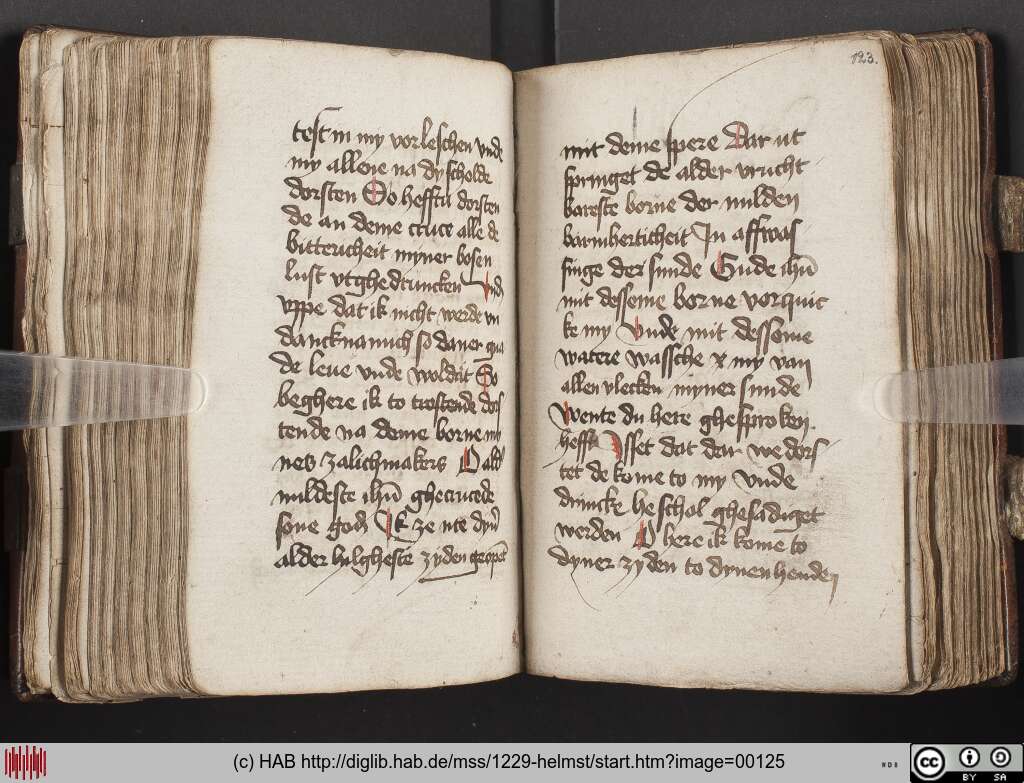 test in my vorleschen vnde
my allene na dy scholde
dorsten So hefftu dorsten
de an deme cruce alle de
bittericheit myner bosen
lust vtghedruncken Vnd
vppe dat ik nicht werde vn
dancknamich so daner gna
de leue vnde woldait So
beghere ik to trostende dors
tende na deme borne my
nes zalichmakers O alde
mildeste ihū ghecrucede
sone godes Ik ze nte dyn
alder hilgheste zyden geopēt
123.
mit deme spere Dar ut
springet de alder vrucht
bareste borne der milden
barmherticheit In affwas
singe der sunde Gude ihū
mit desseme borne vorquic
ke my Vnde mit desseme
watere wassche my van
allen vlecken myner sunde
Wente du here ghesproken
heffst Isset dat dar we dors
tet de kome to my Vnde
drincke he schol ghesadiget
werden O here ik kome to
dyner zyden to dynen henden
(c) HAB http://diglib.hab.de/mss/1229-helmst/start.htm?image=00125
WDB
cc BY SA